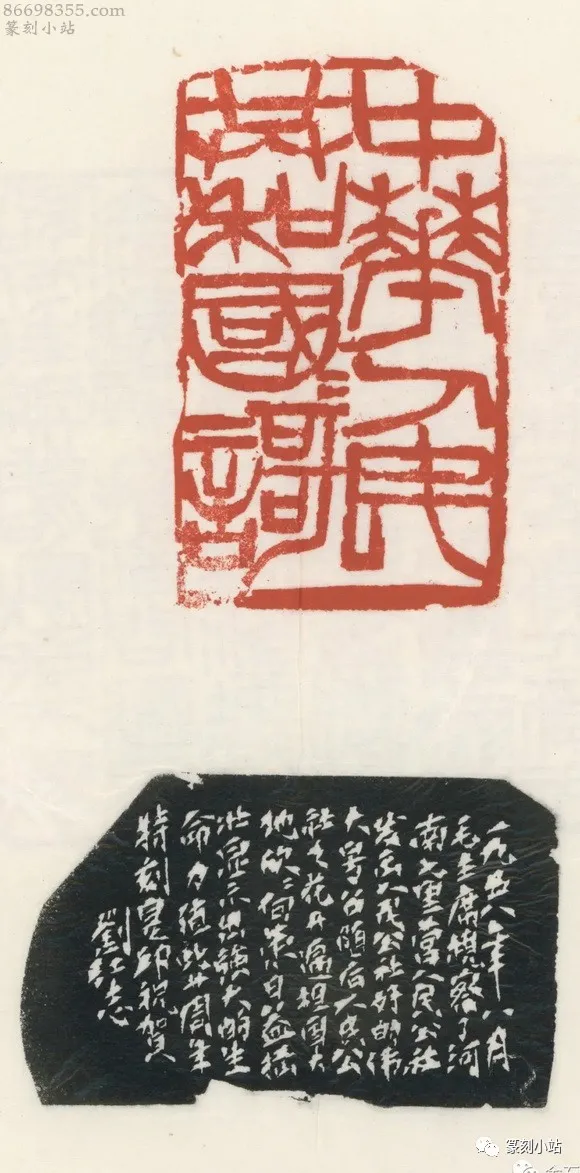 86698355.com
篆刻小站
中華人民
共和國謌
一九五八年八月
毛主席視察了河
南七里营人民公社
发出人民公社好的伟
大号召随后人民公
社之花开遍祖国大
地欣〻向荣日益茁
壮显示出强大的生
命力值此廿周年
特刻是印祝贺
劉江志
篆刻小站